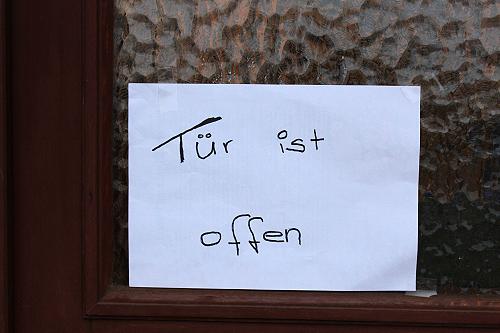 Tür ist
offen